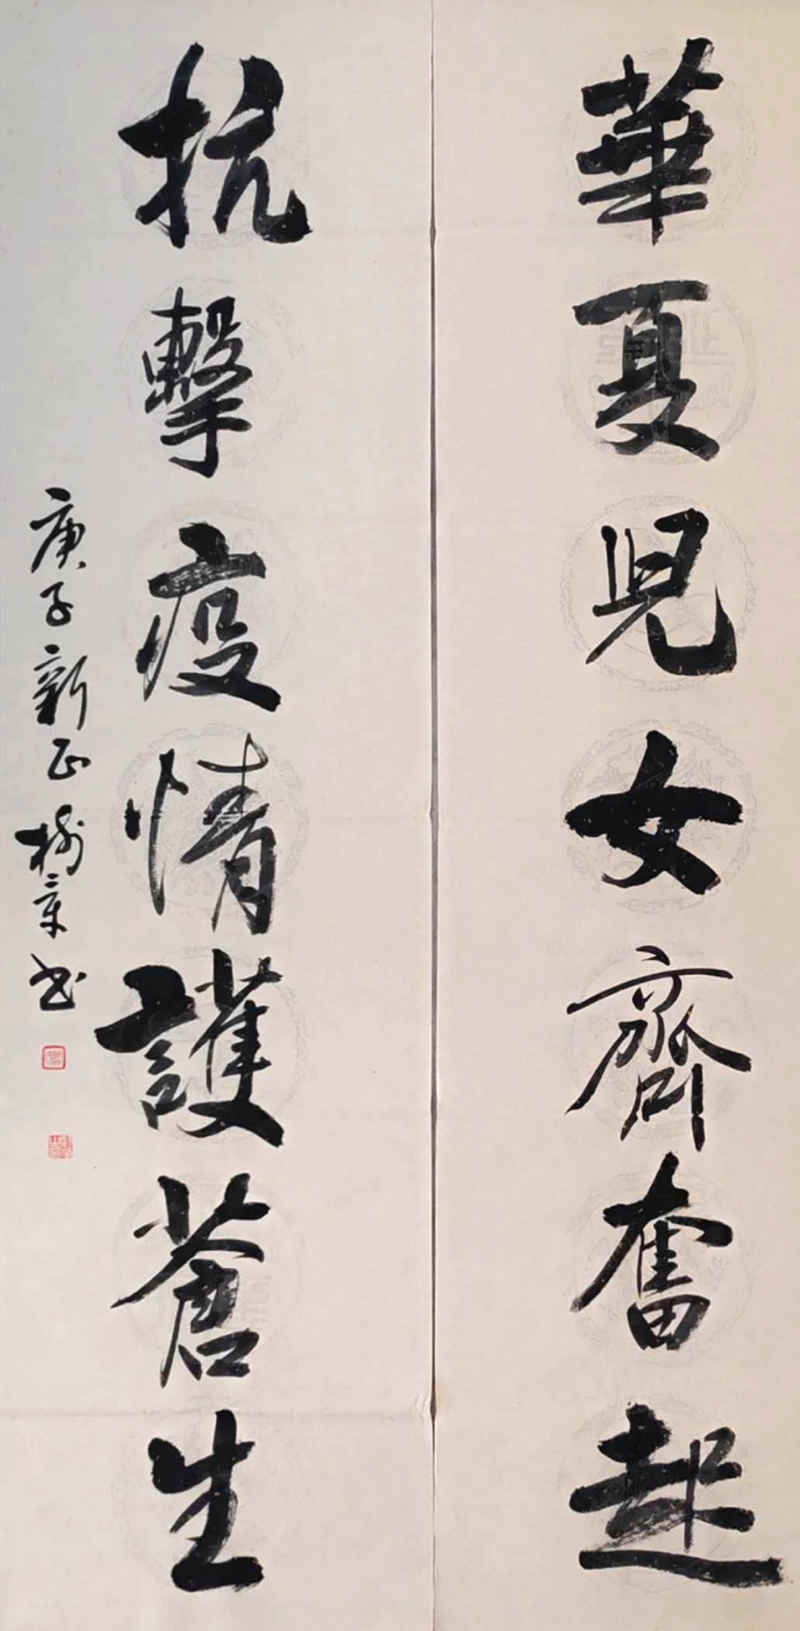 華夏兒女齊奮起
抗擊疫情護蒼生
庚子新正樹章书